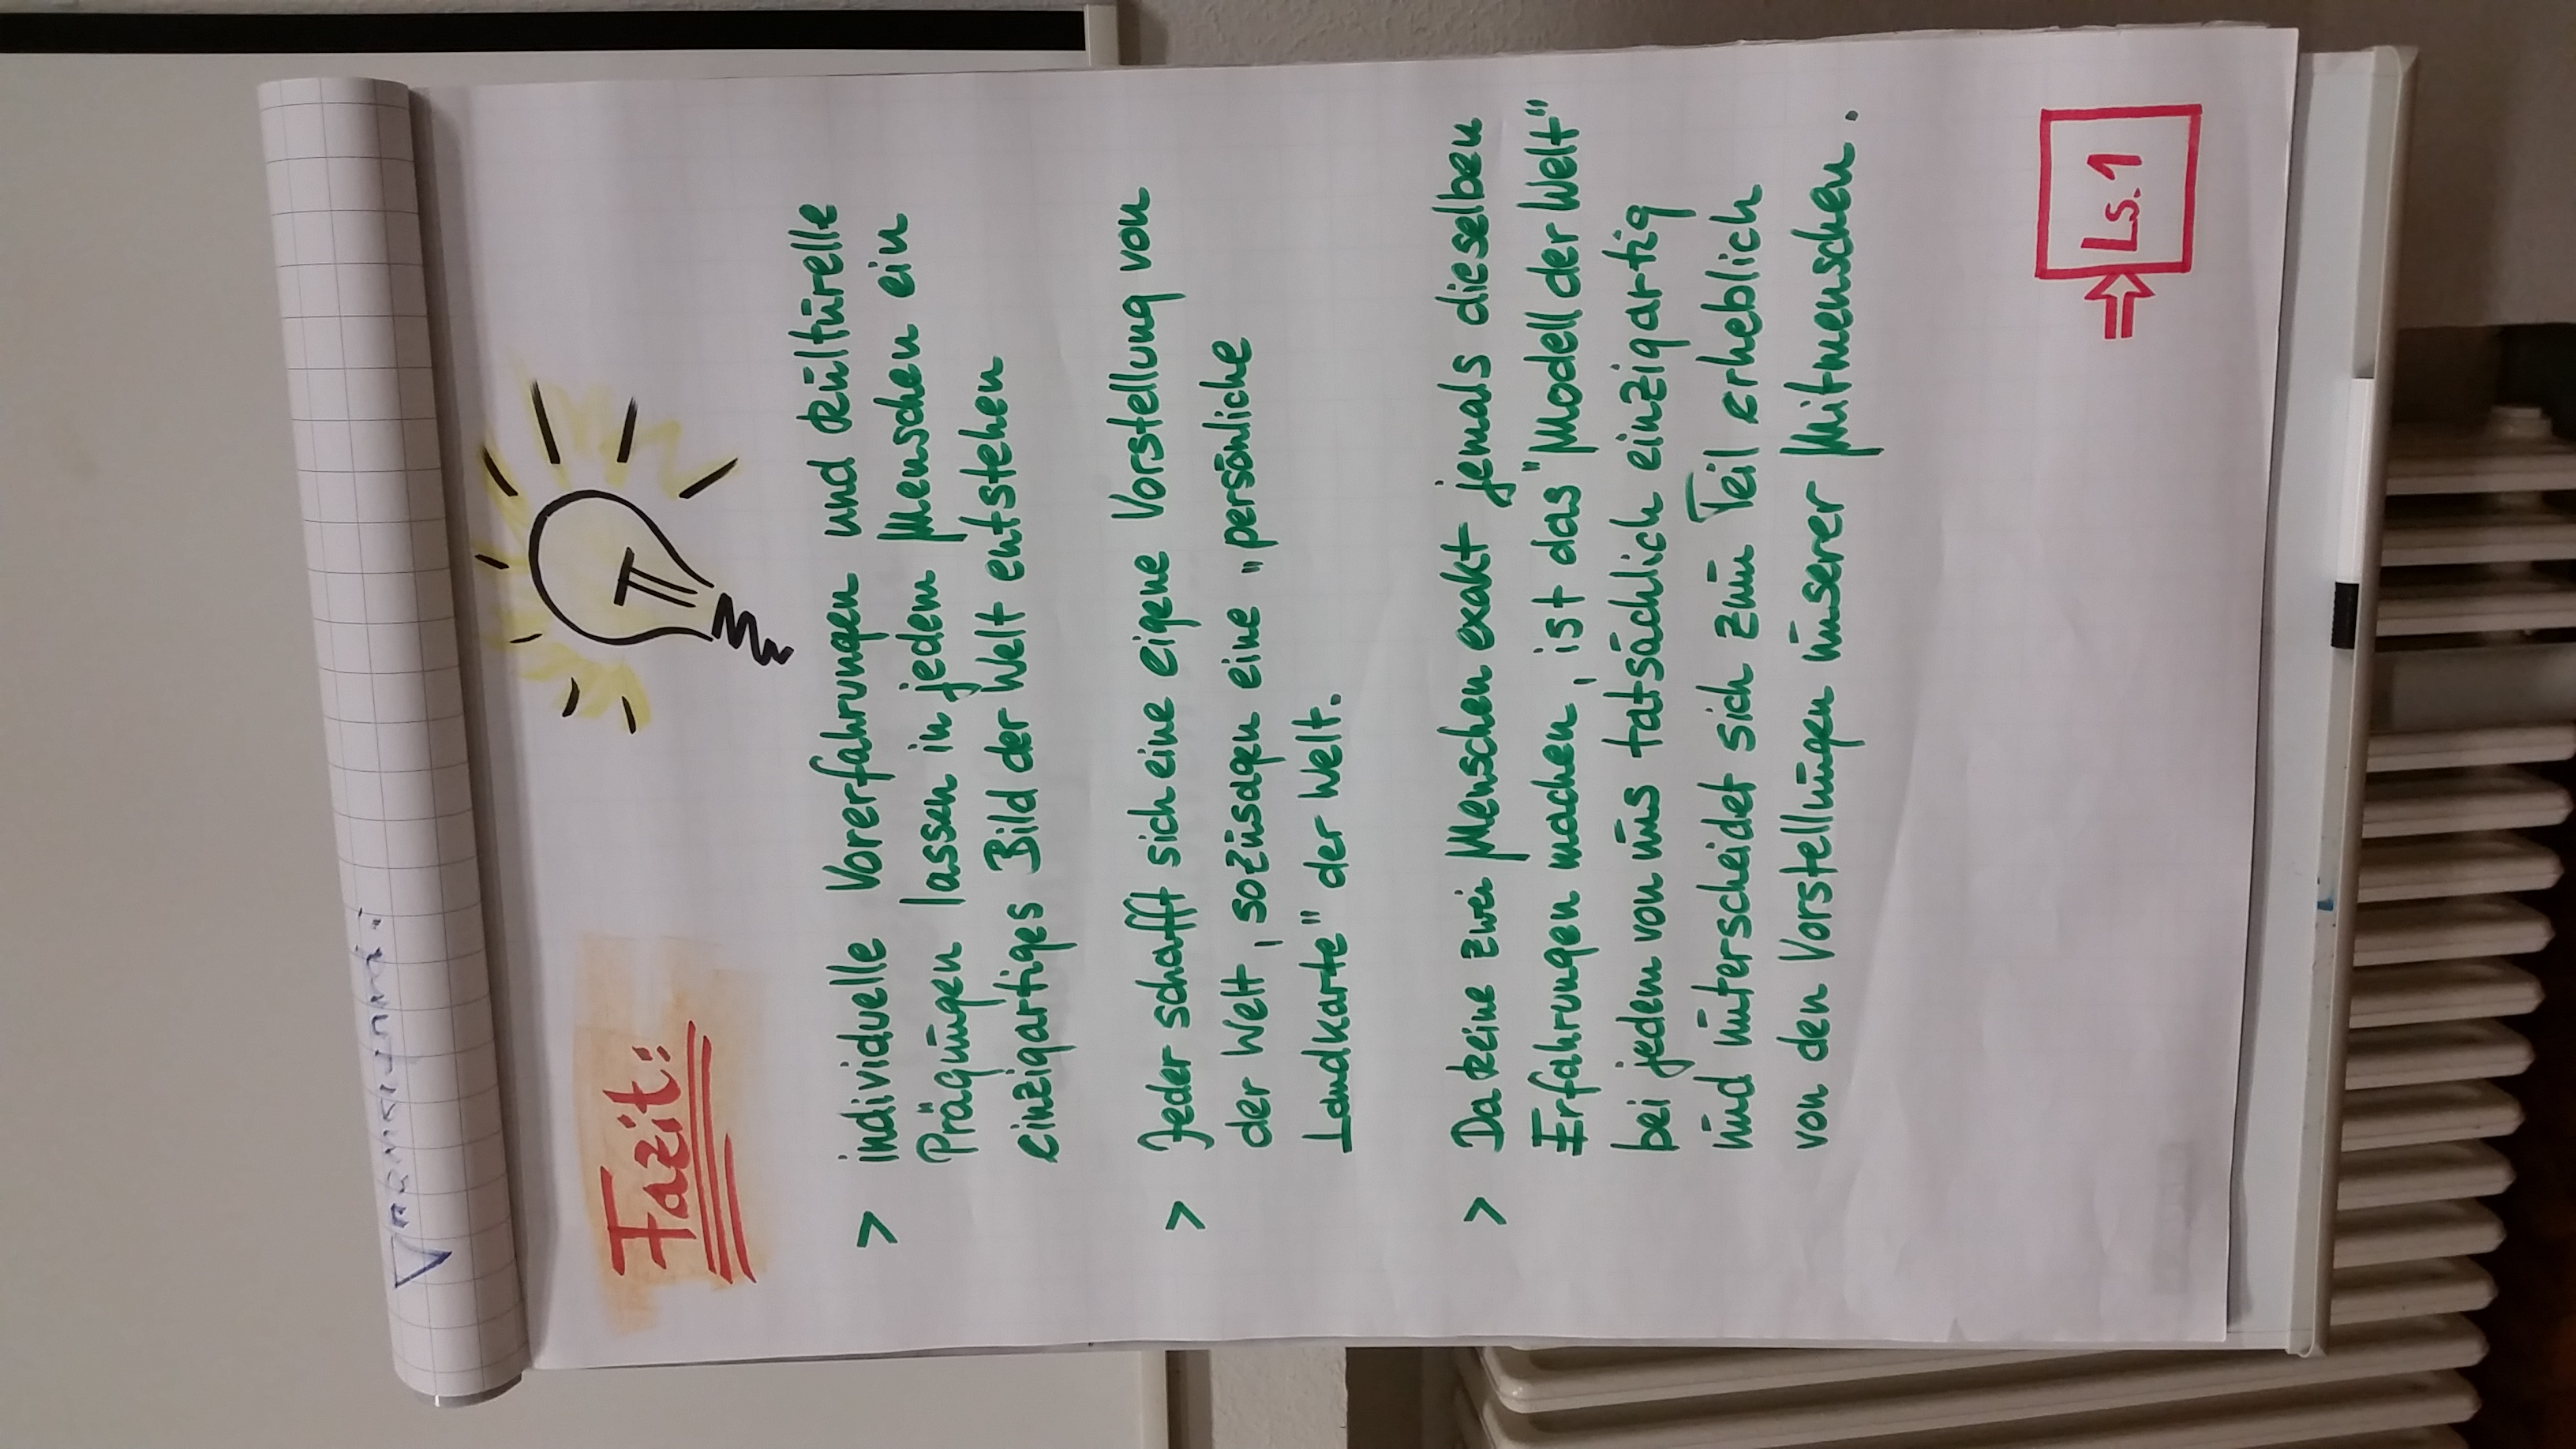 Fazit:
> individuelle Vorerfahrungen und kulturelle
Prägungen lassen in jedem Menschen ein
einzigartiges Bild der Welt entstehen
> Jeder schafft sich eine eigene Vorstellung von
der Welt, sozusagen eine „persönliche
Landkarte" der Welt.
> Da keine zwei Menschen exakt jemals dieselben
Erfahrungen machen, ist das "Modell der Welt"
bei jedem von uns tatsächlich einzigartig
und unterscheidet sich zum Teil erheblich
von den Vorstellungen unserer Mitmenschen.
⇒ Ls. 1